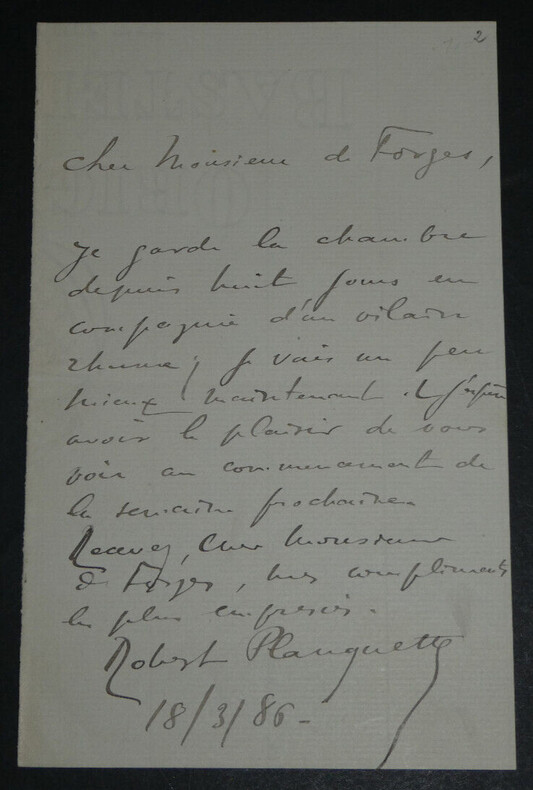 2
Cher Monsieur de Forges,
Je garde la chambre
depuis huit jours en
compagnie d'un vilain
rhume; je vais un peu
mieux maintenant et j'espère
avoir le plaisir de vous
voir au commencement de
la semaine prochaine.
Recevez, Cher Monsieur
de Forges, mes compliments
les plus empressés.
Robert Planquette
18/3/86-